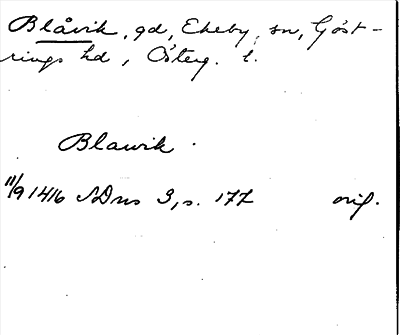 Blåvik, gd, Ekeby sn, Göst-
rings hd, Österg. l.
Blawik.
11/9 1416 SDns 3, s. 177 orig.